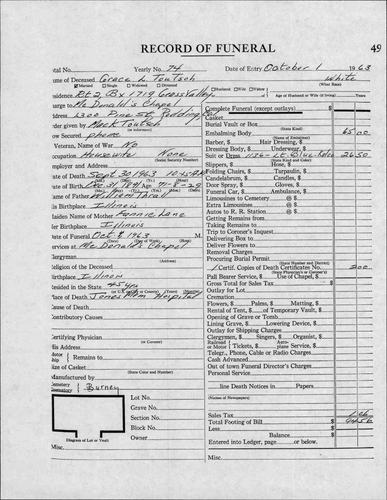 RECORD OF FUNERAL 49
Yearly No. 74 Date of Entry October 1 1963
Name of Deceased Grace L. Toutsch White
Married Single Widowed Divorced Husband Wife Widow
(What Race)
Residence Rt 2, Bx 1719 Grass Valley
Age of Husband or Wife (if living) Years
Charge to McDonald's Chapel
Complete Funeral (except outlays) $
Address 1300 Pine St Redding, Cal
Casket
Order given by Mack Toutsch
Burial Vault or Box
(or informant)
(State Kind)
How Secured phone
Embalming Body 65.00
(Name of Embalmer)
Veteran, Name of War No
Barber, $ Hair Dressing, $
Occupation Housewife None
Dressing Body, $ Underwear, $
(Social Security Number)
Suit or Dress 1136 - Lt. Blue 26.50
Employer and Address
(State Kind and Color)
Slippers, $ Hose, $
Date of Death Sept 30 1963 10:45 AM
Folding Chairs, $ Tarpaulin, $
Candelabrum, $ Candles, $
Date of Birth Dec 31 1891 71-8-29
Door Spray, $ Gloves, $
Name of Father William Thrall
Funeral Car, $ Ambulance, $
Birthplace Illinois
Limousines to Cemetery @ $
Extra Limousines @ $
Maiden Name of Mother Fannie Lane
Autos to R. R. Station @ $
Getting Remains from
Her Birthplace Illinois
Taking Remains to
Date of Funeral Oct 2 1963 M.
Trip to Coroner's Inquest
Delivering Box to
Services at McDonald's Chapel
Deliver Flowers to
Clergyman
Removal Charges
Procuring Burial Permit
Religion of the Deceased
(State Number and District)
1 Certf. Copies of Death Certificates No. 2.00
Birthplace Illinois
(State Physician's or Coroner's)
Pall Bearer Service, $ Use of Chapel, $
Resided in the State 45 yrs
Gross Total for Sales Tax $
Place of Death Jones Mem Hospital
Outlay for Lot
Cremation
Cause of Death
Flowers, $ Palms, $ Matting, $
Contributory Causes
Rental of Tent, $ of Temporary Vault, $
Opening of Grave or Tomb
Lining Grave, $ Lowering Device, $
Certifying Physician
Outlay for Shipping Charges
(or Coroner)
Clergymen, $ Singers, $ Organist, $
His Address
Railroad or Motor Tickets, $ Aeroplane Service, $
Remains to
Telegr., Phone, Cable or Radio Charges
Cash Advanced
Size of Casket
Out of town Funeral Director's Charges
(State Color and Number)
Personal Service
Manufactured by
line Death Notices in Papers
Cemetery
Crematory Burney
(Names of Newspapers)
Lot No.
Grave No.
Section No.
Sales Tax $
Block No.
Total Footing of Bill $
Less $
Owner
Balance $
Diagram of Lot or Vault
Entered into Ledger, page or below.
Misc.
Misc.